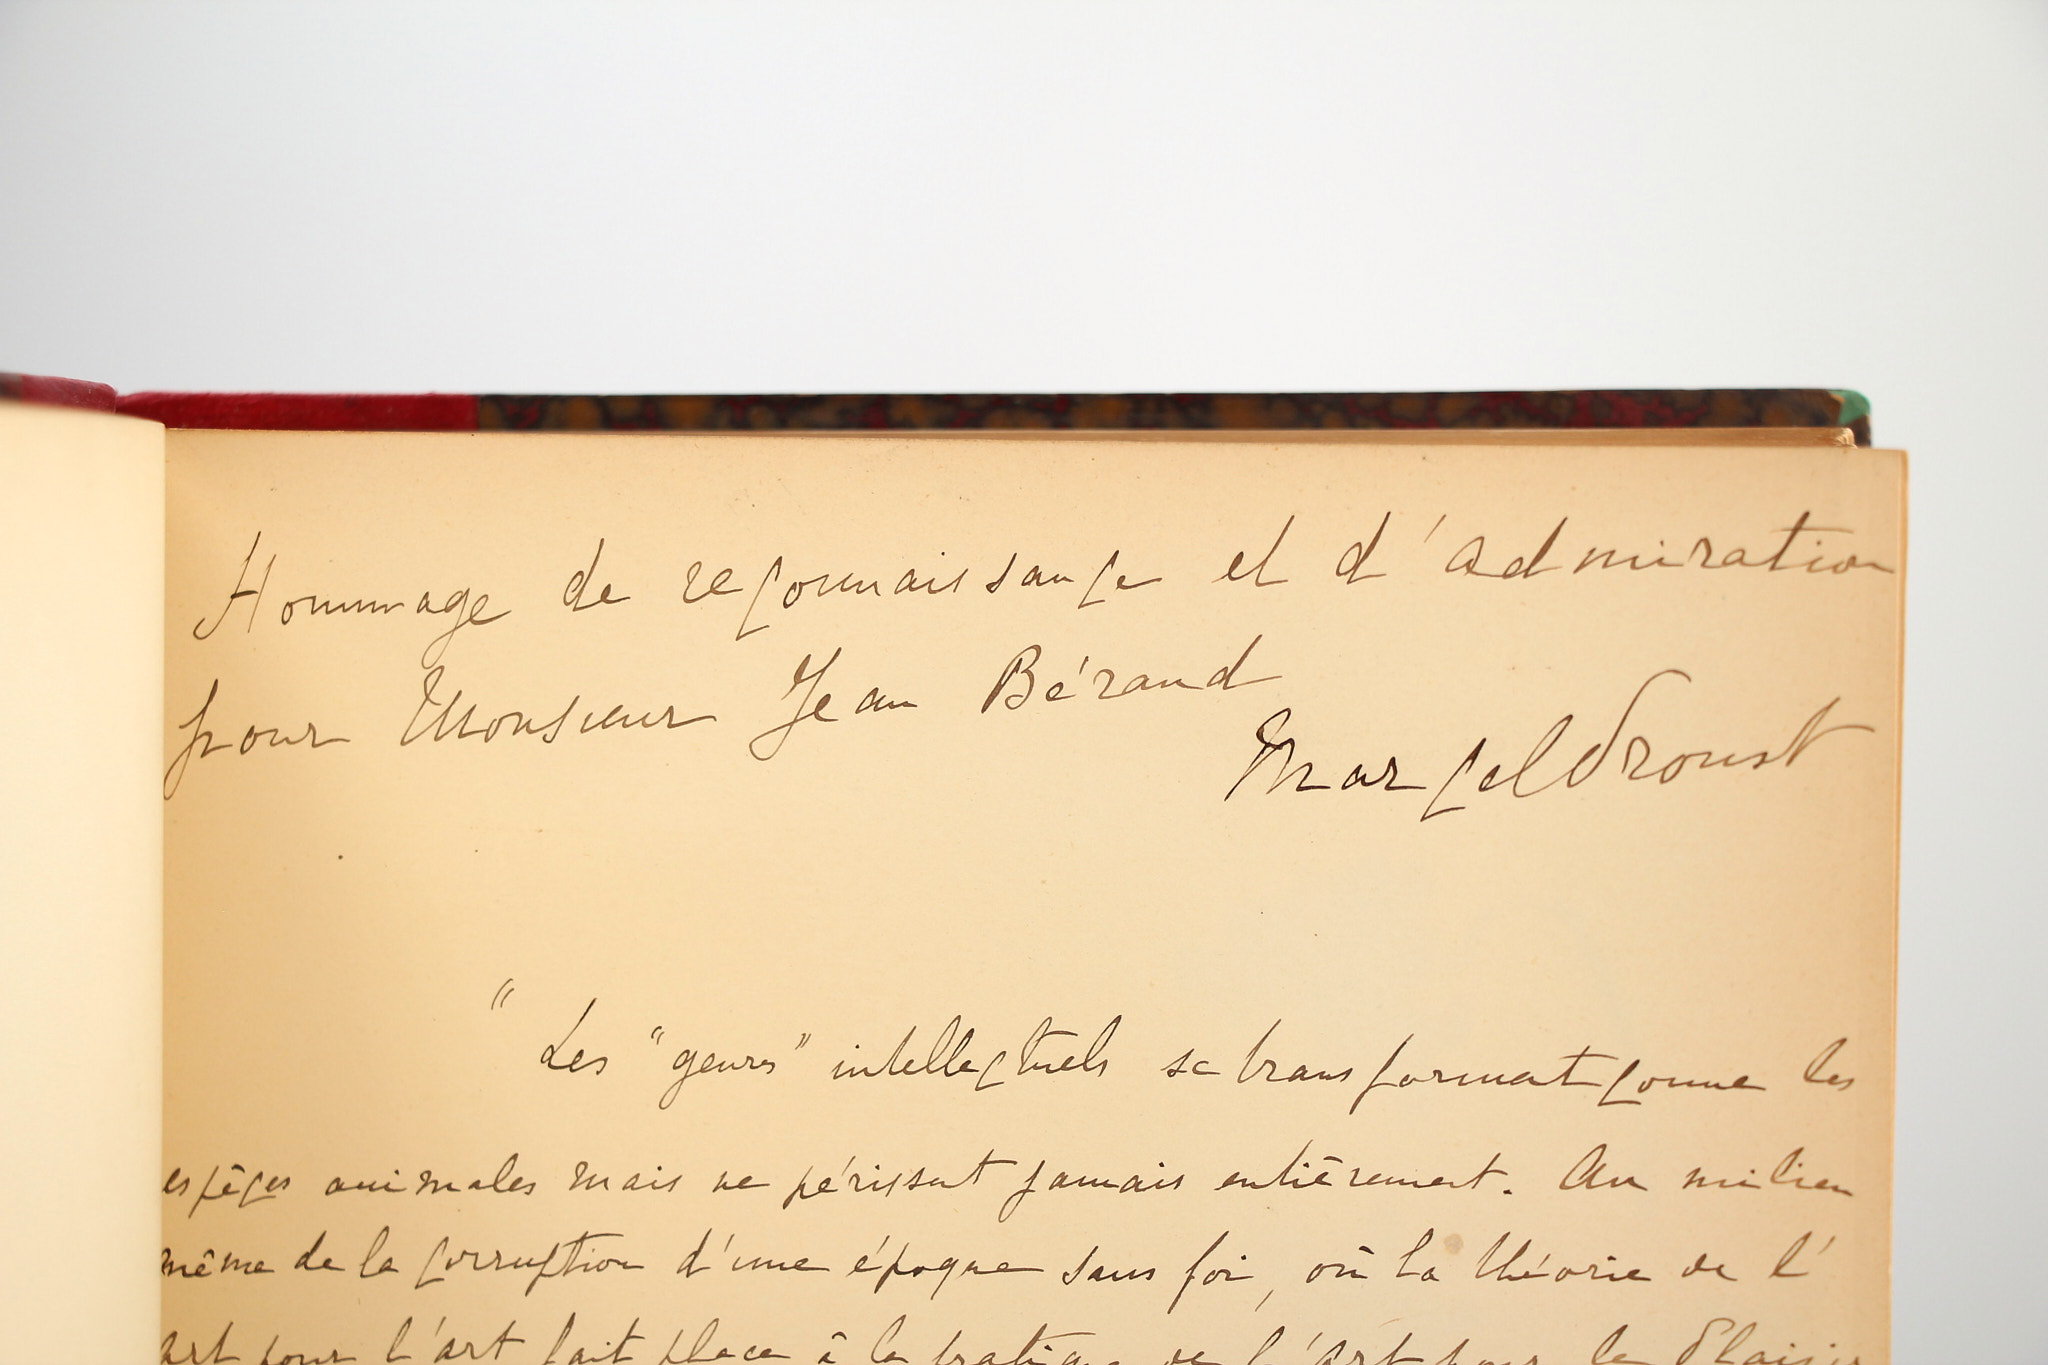 Hommage de reconnaissance et d'admiration
pour Monsieur Jean Béraud
Marcel Proust
" Les "genres" intellectuels se transforment comme les
espèces animales mais ne périssent jamais entièrement. Au milieu
même de la corruption d'une époque sans foi, où la théorie de l'
art pour l'art fait place à la pratique de l'Art pour le Plaisir